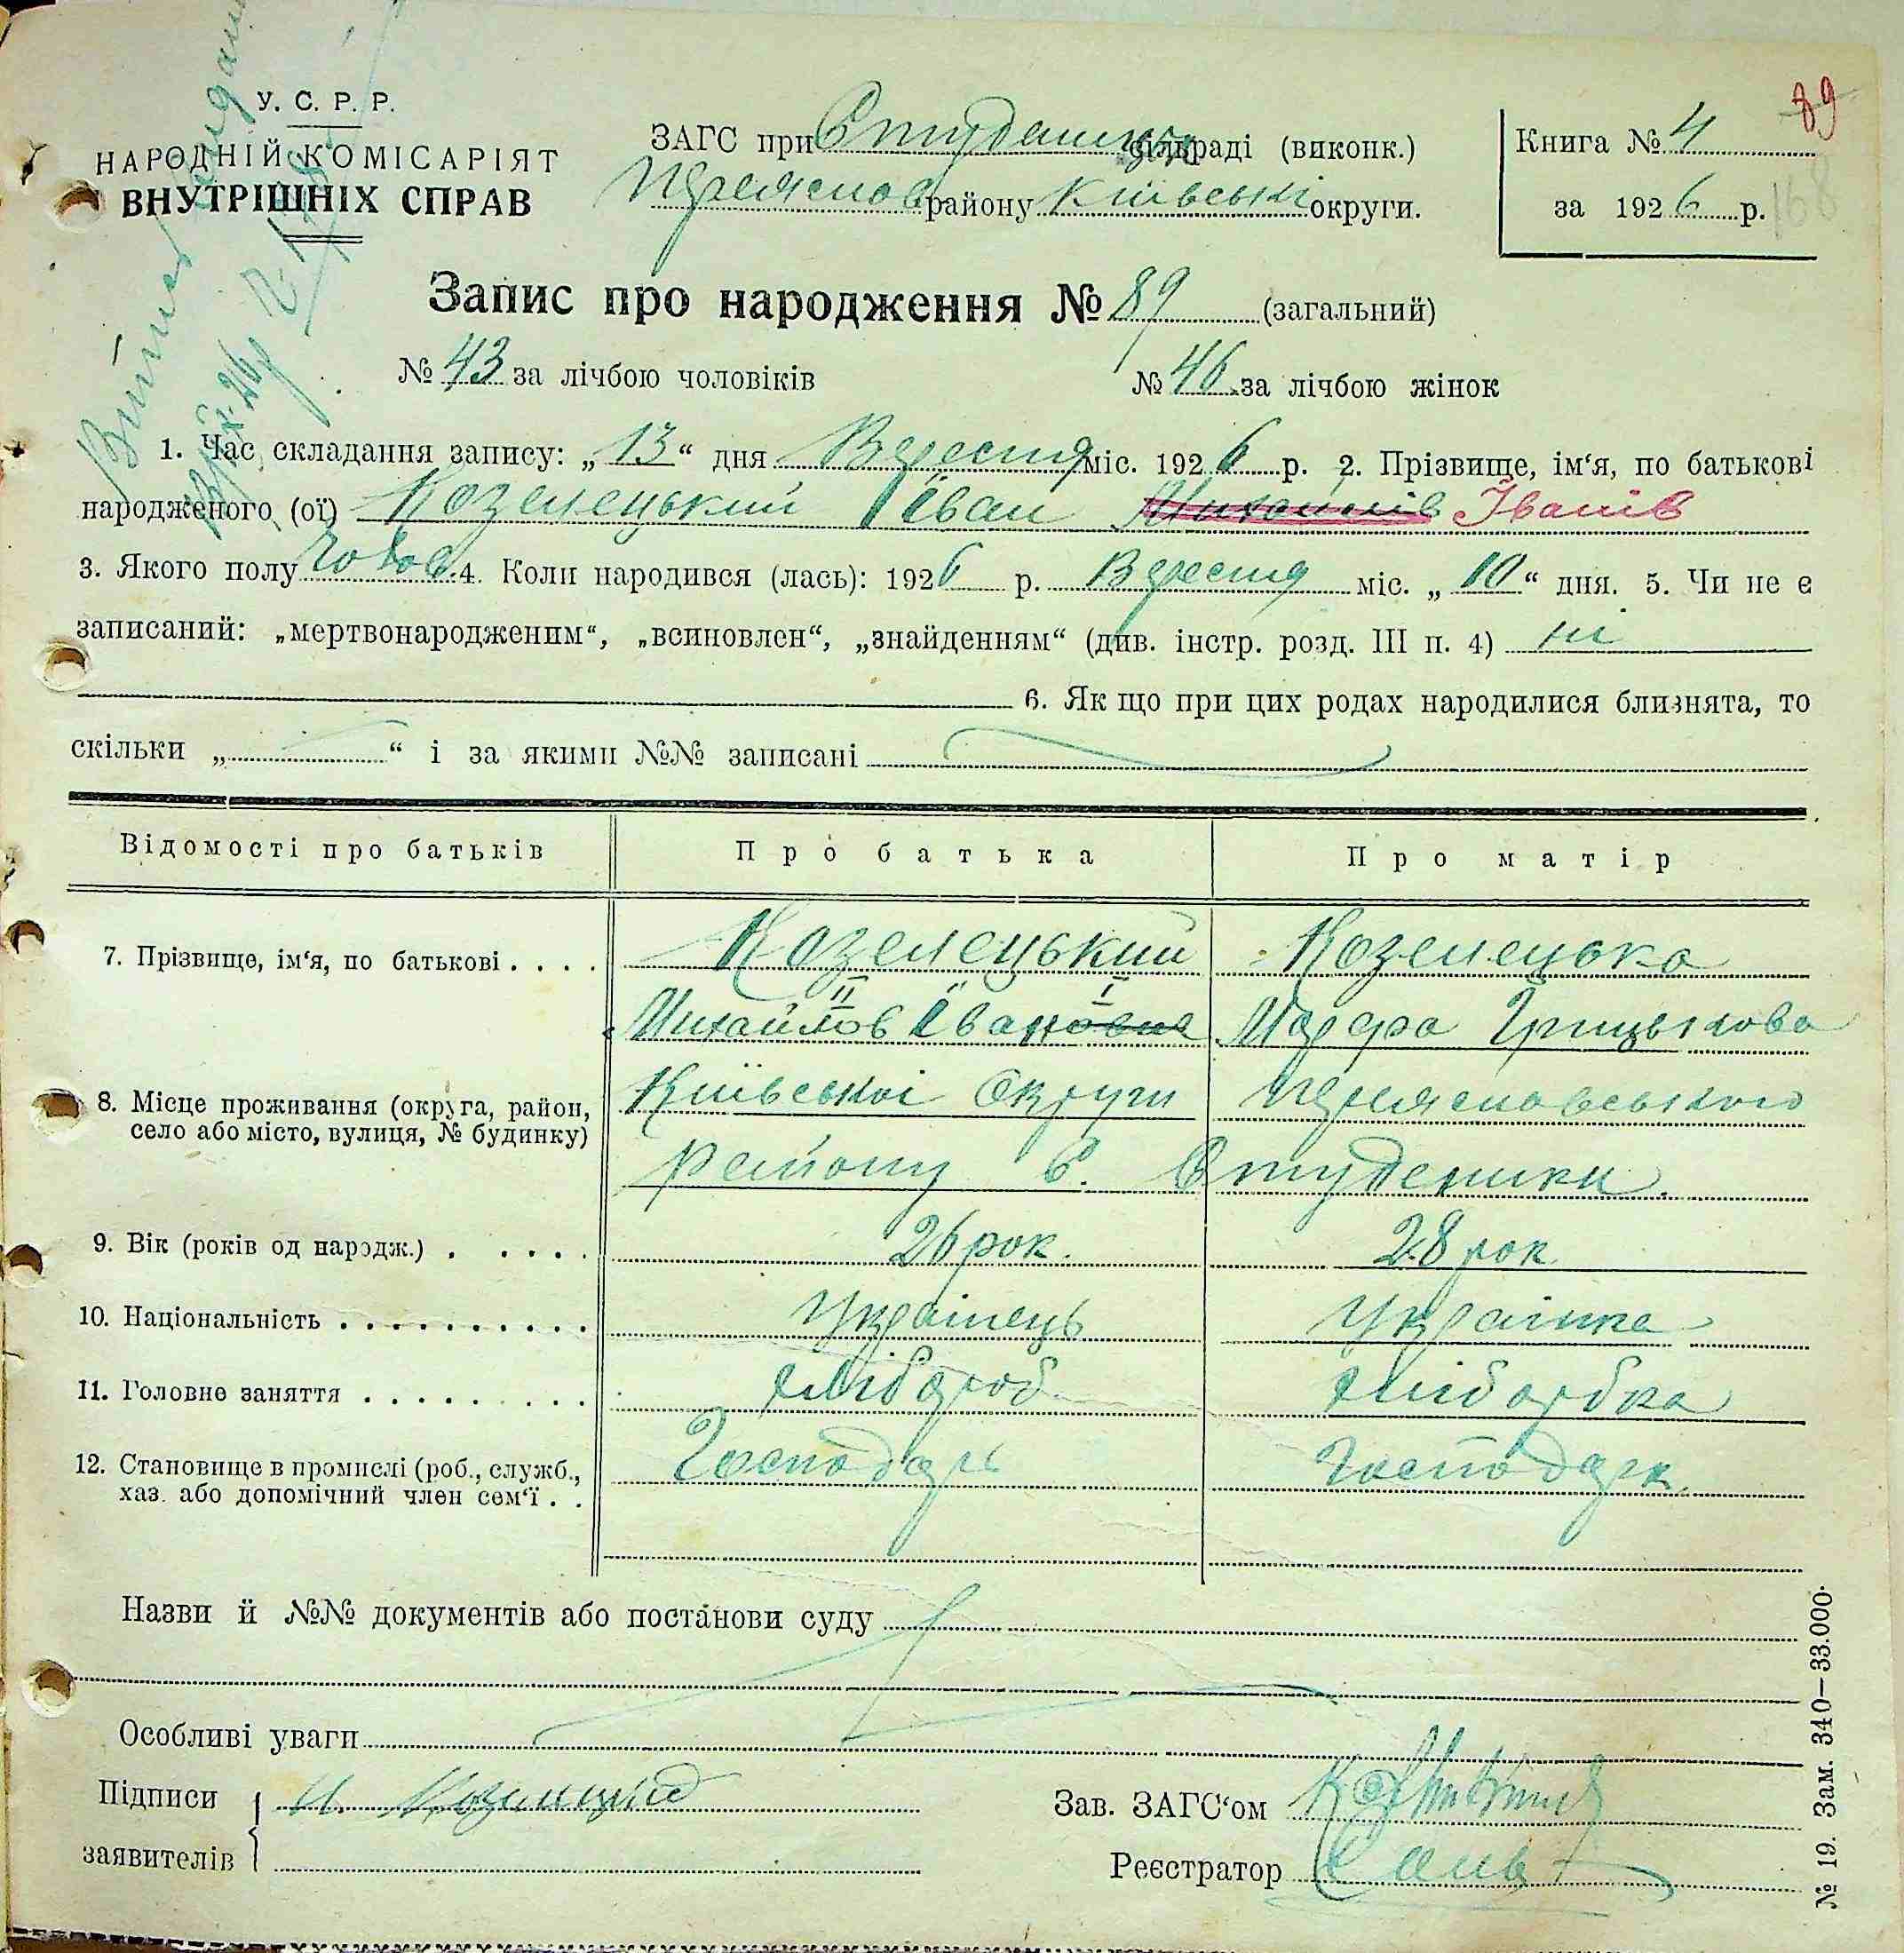 У. С. Р. Р.
НАРОДНІЙ КОМІСАРІЯТ
ВНУТРІШНІХ СПРАВ
ЗАГС при сільраді (виконк.)
району Київської округи.
Книга № 4
за 1926 р.
89
168
Запис про народження № 89 (загальний)
№ 43 за лічбою чоловіків
№ 46 за лічбою жінок
1. Час складання запису: „13“ дня Вересня міс. 1926 р. 2. Прізвище, ім‘я, по батькові
народженого (ої) Козелецький Іван Михайлів Іванів
3. Якого полу 4. Коли народився (лась): 1926 р. Вересня міс. „10“ дня. 5. Чи не є
записаний: „мертвонародженим“, „всиновлен“, „знайденням“ (див. інстр. розд. III п. 4) ні
6. Як що при цих родах народилися близнята, то
скільки „ “ і за якими №№ записані
Відомості про батьків
Про батька
Про матір
7. Прізвище, ім‘я, по батькові . . . .
Козелецький
Козелецька
II I
Михайлов Іван
Марфа Грицькова
8. Місце проживання (округа, район,
село або місто, вулиця, № будинку)
Київської Округи
району с. Студеники.
9. Вік (років од народж.) . . . . .
26 рок.
28 рок
10. Національність . . . . . . . . . .
Українець
Українка
11. Головне заняття . . . . . . . . .
хлібороб
12. Становище в промислі (роб., служб.,
хаз. або допомічний член сем‘ї . .
Господарь
Господарк.
Назви й №№ документів або постанови суду
Особливі уваги
Підписи
заявителів
Зав. ЗАГС‘ом
Реєстратор
№ 19. Зам. 340—33.000.